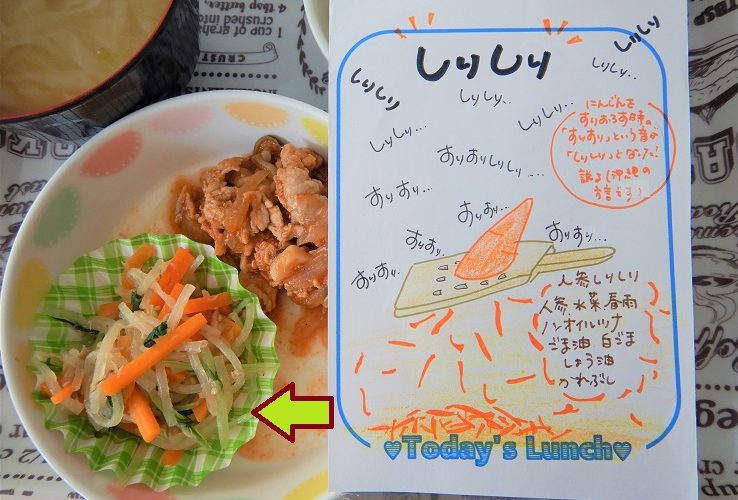 しりしり
しりしり
しりしり
しりしり‥
しりしり‥
しりしり‥
しりしり…
すりすりしりし…
すりすり…
すりすり…
すりすり…
すりすり…
すりすり…
にんじんを
すりおろす時の
「すりすり」という音が
「しりしり」となった!
説も(沖縄の
方言です)
人参しりしり
人参、水菜、春雨
ノンオイルツナ
ごま油 白ごま
しょう油
かつおぶし
♥Today's Lunch♥
1 CUP of graham
crushed into
CRUST